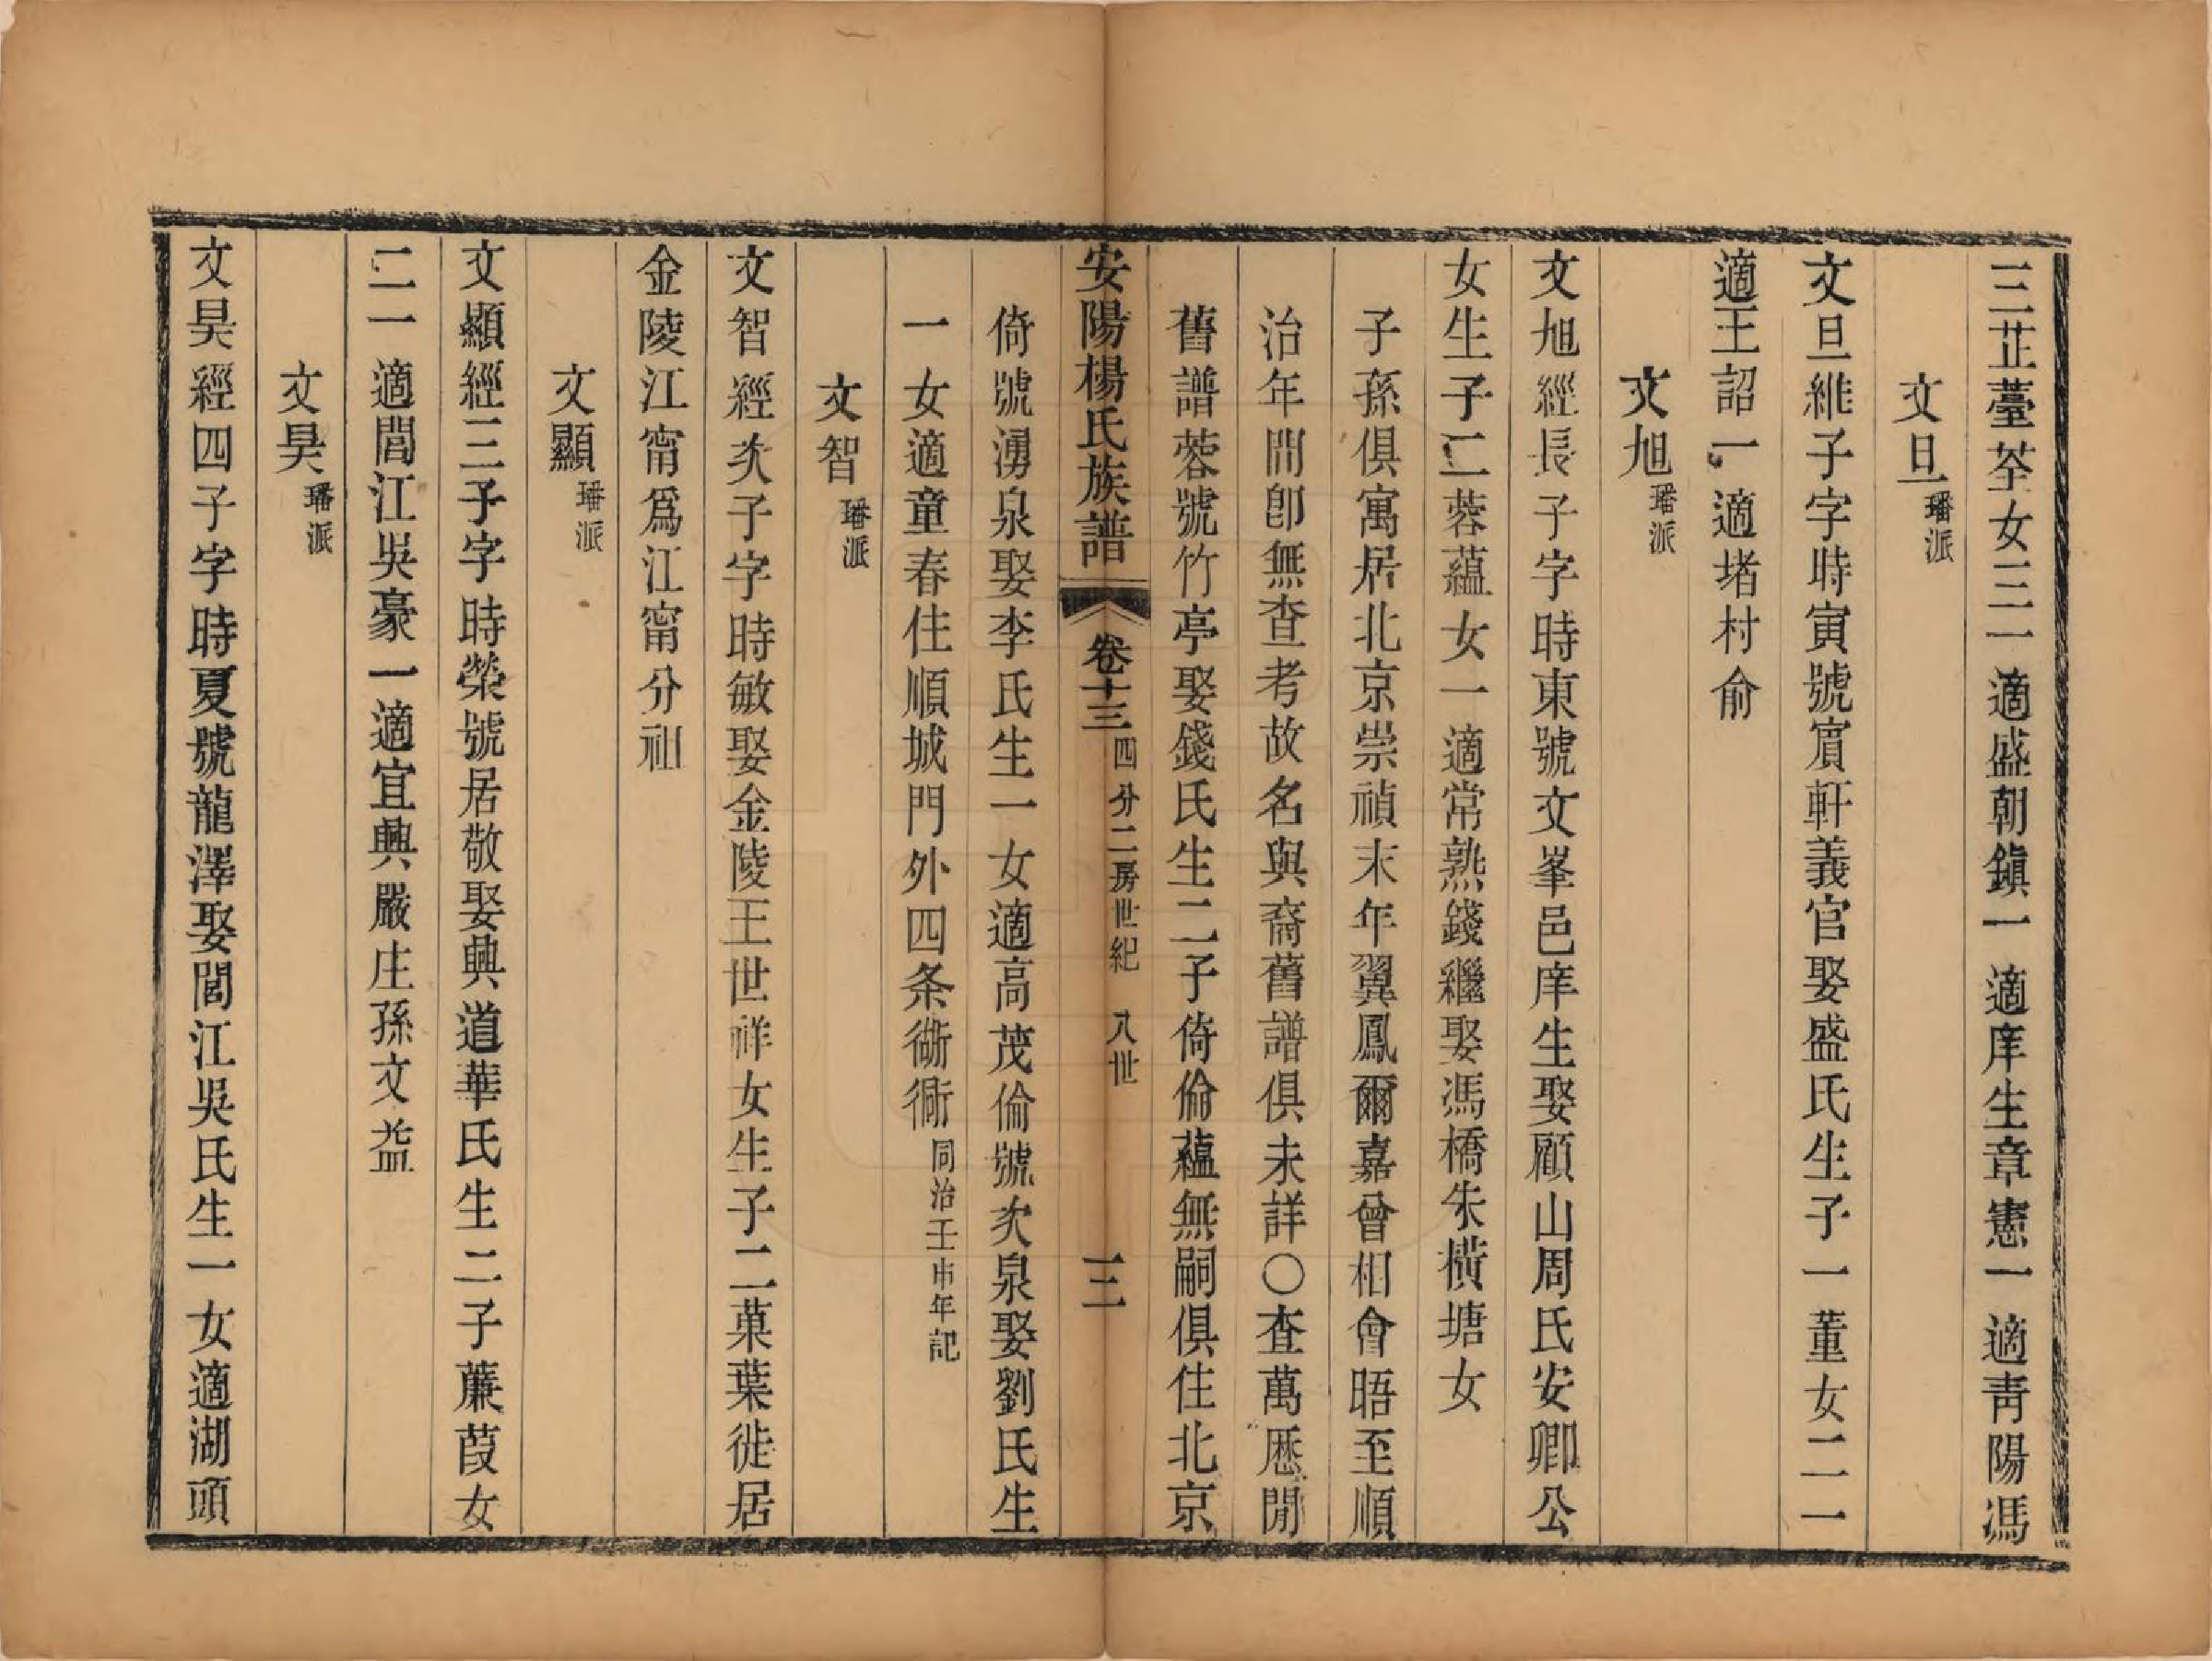 三芷薹荃女三一適盛朝鎮一適庠生章憲一適青陽馮
文旦璠派
文旦維子字時寅號賓軒義官娶盛氏生子一董女二一
適王詔一適堵村俞
文旭璠派
文旭經長子字時東號文峯邑庠生娶顧山周氏安卿公
女生子二蓉蘊女一適常熟錢繼娶馮橋朱橫塘女
子孫俱寓居北京崇禎末年翼鳳爾嘉曾相會晤至順
治年間卽無查考故名與裔舊譜俱未詳○查萬歷閒
舊譜蓉號竹亭娶錢氏生二子倚倫蘊無嗣俱住北京
安陽楊氏族譜 卷十三四分二房世紀 八世 三
倚號湧泉娶李氏生一女適高茂倫號次泉娶劉氏生
一女適童春住順城門外四条衚衕同治壬申年記
文智璠派
文智經次子字時敏娶金陵王世祥女生子二菓葉徙居
金陵江甯爲江甯分祖
文顯璠派
文顯經三子字時榮號居敬娶興道華氏生二子薕葭女
二一適閭江吳豪一適宜興嚴庄孫文益
文昊璠派
文昊經四子字時夏號龍澤娶閭江吳氏生一女適湖頭